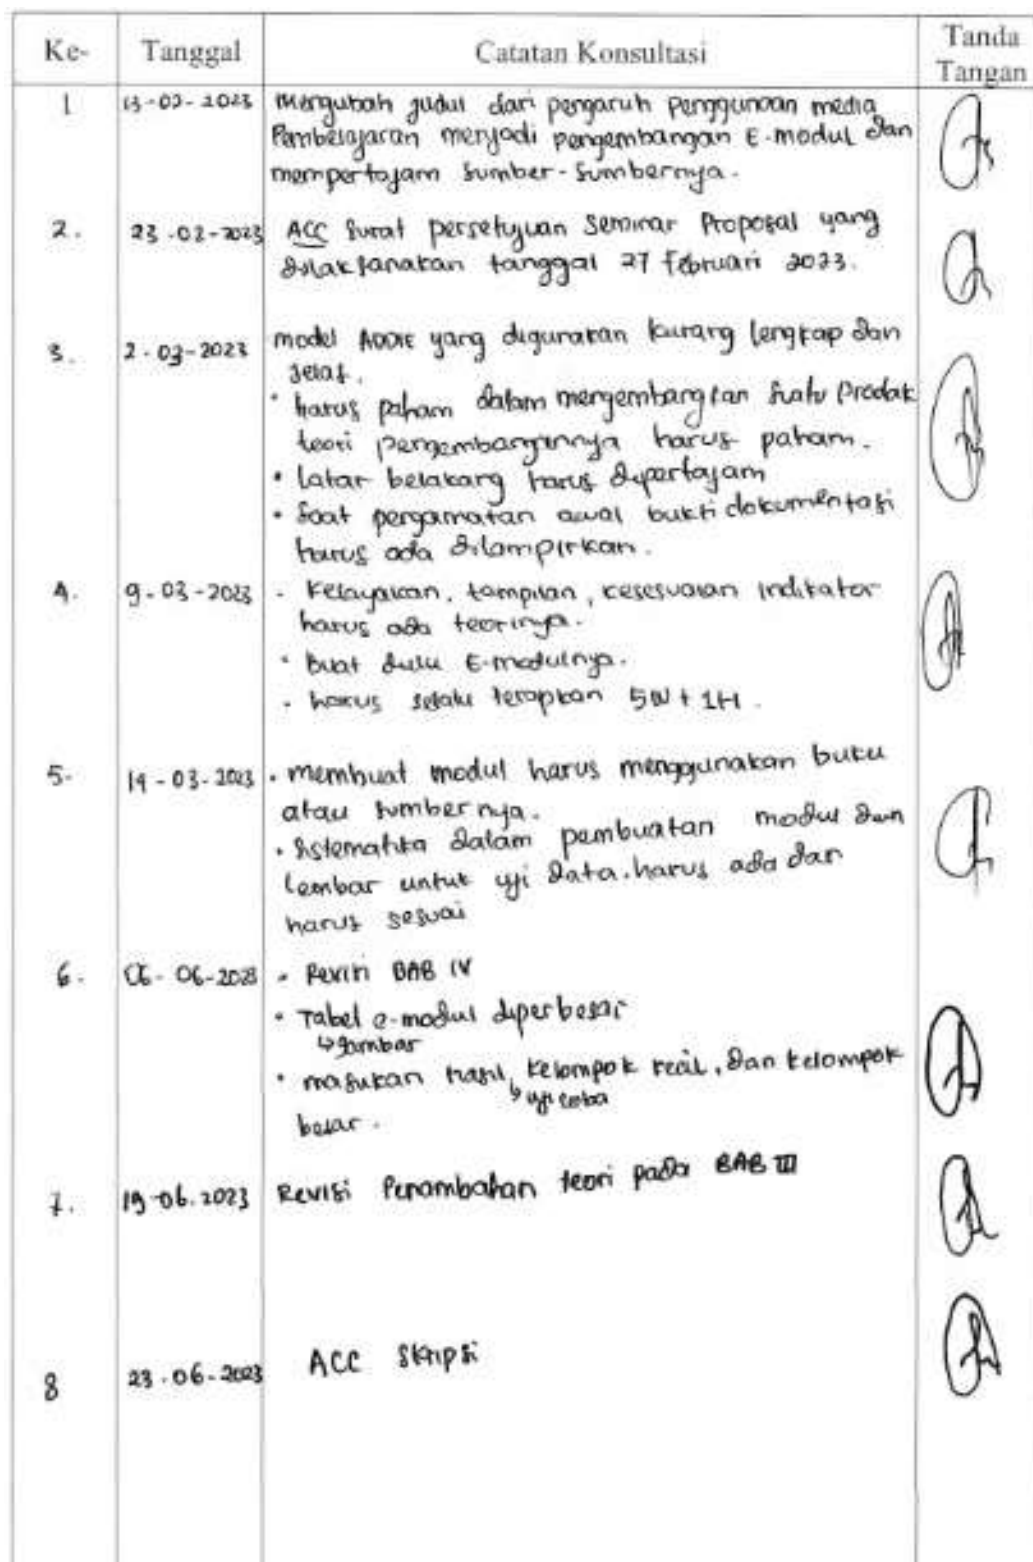 Ke- Tanggal Catatan Konsultasi Tanda Tangan
1 13-02-2023 Mengubah judul dari pengaruh penggunaan media
Pembelajaran menjadi pengembangan E-modul dan
mempertajam sumber-sumbernya.
2. 23-02-2023 ACC Surat persetujuan Seminar Proposal yang
dilaksanakan tanggal 27 Februari 2023.
3. 2-03-2023 model ADDIE yang digunakan kurang lengkap dan
jelas.
• harus paham dalam mengembangkan suatu Prodak
teori pengembangannya harus paham.
• latar belakang harus dipertajam
• Saat pengamatan awal bukti dokumentasi
harus ada dilampirkan.
4. 9-03-2023 - Kelayakan, tampilan, kesesuaian indikator
harus ada teorinya.
- buat dulu E-modulnya.
- harus selalu terapkan 5W + 1H.
5- 14-03-2023 • membuat modul harus menggunakan buku
atau sumbernya.
• Sistematika dalam pembuatan modul dan
lembar untuk uji data. harus ada dan
harus sesuai
6. 06-06-2023 • Revisi BAB IV
• Tabel e-modul diperbesar
↳ gambar
• masukan hasil, kelompok kecil, dan kelompok
↳ uji coba
besar.
7. 19-06-2023 Revisi Penambahan teori pada BAB III
8 23-06-2023 ACC Skripsi